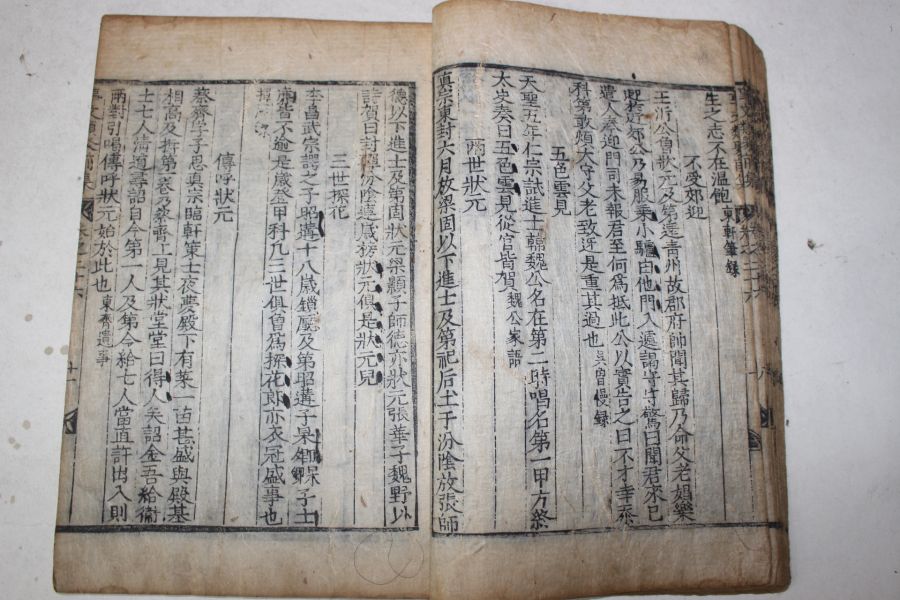 生之志不在溫飽 東軒筆錄
不受郊迎
王沂公曾狀元及第還青州故郡府帥聞其歸乃命父老娼樂
迎於近郊公乃易服乘小驢由他門入遽謁守守驚曰聞君來已
遣人奉迎門司未報君至何爲抵此公以實告之曰不才幸忝
科第敢煩太守父老致迓是重其過也 吳曾漫錄
五色雲見
天聖五年仁宗試進士韓魏公名在第二時唱名第一甲方終
太史奏曰五色雲見從官皆賀 魏公家語
兩世狀元
眞宗東封六月放梁固以下進士及第祀后土于汾陰放張師
德以下進士及第固狀元梁顥子師德亦狀元張華子魏野以
詩賀曰封禪汾陰連歲榜狀元俱是狀元兒
三世探花
李昌武宗諤之子昭遘十八歲鎖廳及第昭遘子杲卿杲卿子士
廉皆不逾是歲登甲科凡三世俱曾爲探花郎亦衣冠盛事也
傳呼狀元
蔡齊字子思眞宗臨軒策士夜夢殿下有菜一苗甚盛與殿基
相高及拆第一卷乃蔡齊上見其狀堂堂曰得人矣詔金吾給衞
士七人淸道尋詔自今第一人及第令給七人當直許出入則
兩對引喝傳呼狀元始於此也 東齊遺事